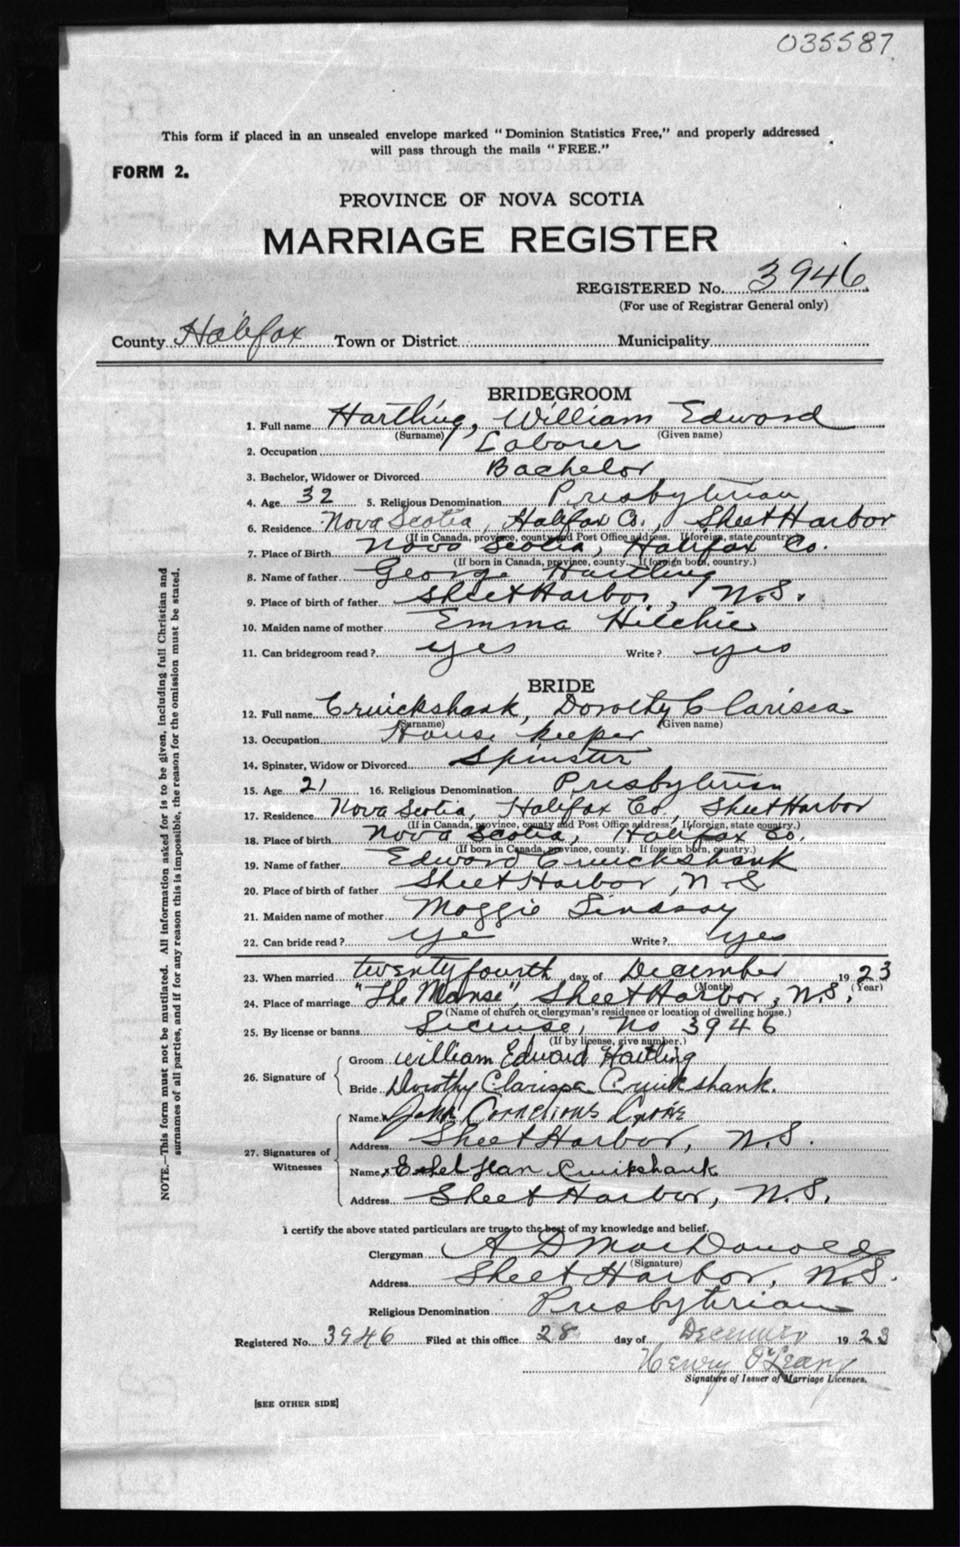 035587
This form if placed in an unsealed envelope marked "Dominion Statistics Free," and properly addressed
will pass through the mails "FREE."
FORM 2.
PROVINCE OF NOVA SCOTIA
MARRIAGE REGISTER
REGISTERED No. 3946
(For use of Registrar General only)
County Halifax Town or District Municipality
BRIDEGROOM
1. Full name Hartling, William Edward
(Surname) (Given name)
2. Occupation Laborer
3. Bachelor, Widower or Divorced Bachelor
4. Age 32 5. Religious Denomination Presbyterian
6. Residence Nova Scotia, Halifax Co., Sheet Harbor
(If in Canada, province, county and Post Office address. If foreign, state country.)
7. Place of Birth Nova Scotia, Halifax Co.
(If born in Canada, province, county. If foreign born, country.)
8. Name of father George Hartling
9. Place of birth of father Sheet Harbor, N.S.
10. Maiden name of mother Emma Hilchie
11. Can bridegroom read? yes Write? yes
BRIDE
12. Full name Cruickshank, Dorothy Clarissa
(Surname) (Given name)
13. Occupation House keeper
14. Spinster, Widow or Divorced Spinster
15. Age 21 16. Religious Denomination Presbyterian
17. Residence Nova Scotia, Halifax Co, Sheet Harbor
(If in Canada, province, county and Post Office address. If foreign, state country.)
18. Place of birth Nova Scotia, Halifax Co.
(If born in Canada, province, county. If foreign born, country.)
19. Name of father Edward Cruickshank
20. Place of birth of father Sheet Harbor, N.S
21. Maiden name of mother Maggie Lindsay
22. Can bride read? ye Write? yes
23. When married twenty fourth day of December 1923
(Month) (Year)
24. Place of marriage "The Manse", Sheet Harbor, N.S.
(Name of church or clergyman's residence or location of dwelling house.)
25. By license or banns License, No 3946
(If by license, give number.)
26. Signature of Groom William Edward Hartling
Bride Dorothy Clarissa Cruickshank.
27. Signatures of Witnesses Name John Cornelious
Address Sheet Harbor, N.S.
Name Ethel Jean Cruikshank
Address Sheet Harbor, N.S.
I certify the above stated particulars are true to the best of my knowledge and belief.
Clergyman A D MacDonald
(Signature)
Address Sheet Harbor, N.S.
Religious Denomination Presbyterian
Registered No. 3946 Filed at this office 28 day of December 1923
Henry O'Leary
Signature of Issuer of Marriage Licenses.
[SEE OTHER SIDE]
NOTE.—This form must not be mutilated. All information asked for is to be given, including full Christian and
surnames of all parties, and if for any reason this is impossible, the reason for the omission must be stated.